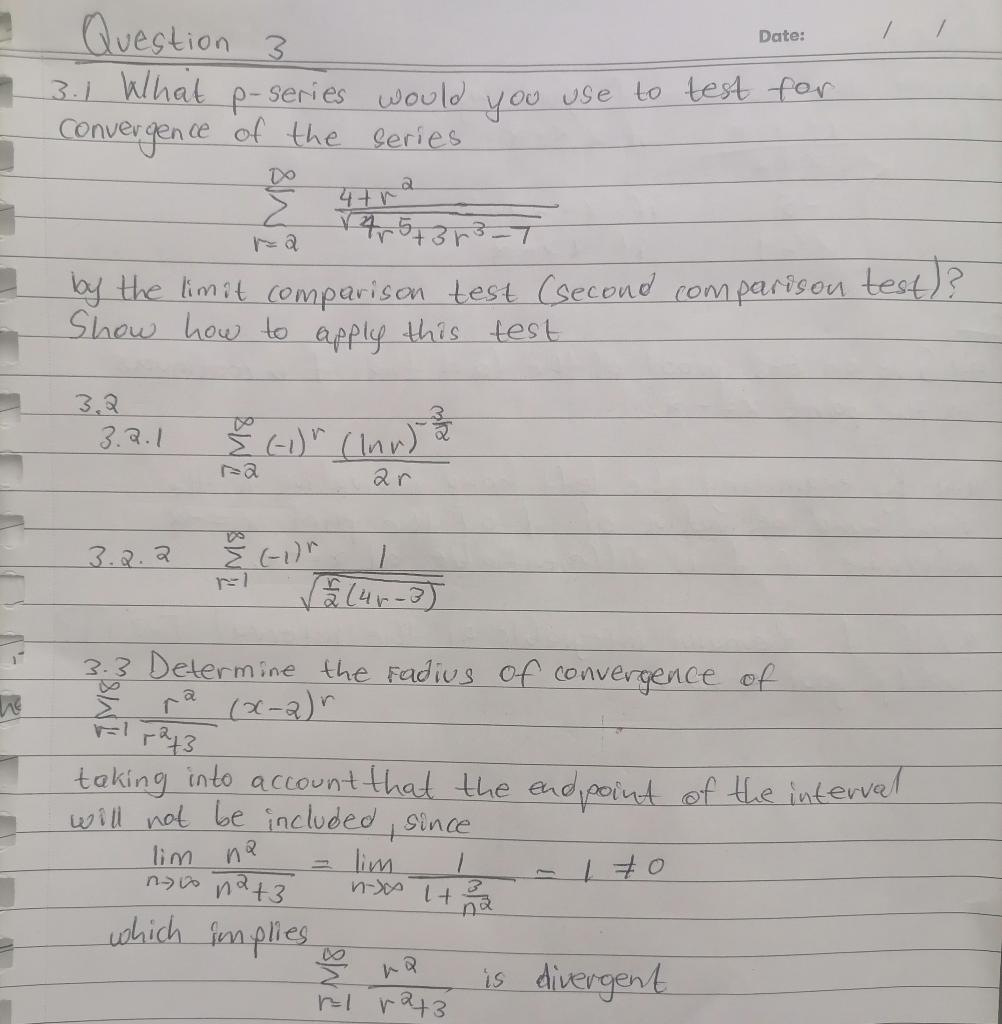 Question 3
Date: / /
3.1 What p-series would you use to test for
convergence of the series
∞
Σ (4+r²)/√(4r⁵+3r³-7)
r=2
by the limit comparison test (second comparison test)?
Show how to apply this test
3.2
3.2.1 ∞ Σ r=2 (-1)ʳ (lnr)^(-3/2) / 2r
3.2.2 ∞ Σ r=1 (-1)ʳ 1/√(r/2(4r-3))
3.3 Determine the radius of convergence of
∞ Σ r=1 r²/(r²+3) (x-2)ʳ
taking into account that the endpoint of the interval
will not be included, since
lim n→∞ n²/(n²+3) = lim n→∞ 1/(1+3/n²) = 1 ≠ 0
which implies
∞ Σ r=1 r²/(r²+3) is divergent